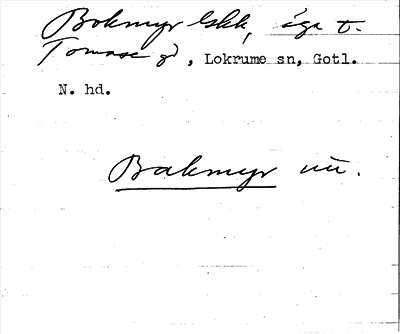 Bokmyr lskk, äga t.
Tomase gd, Lokrume sn, Gotl.
N. hd.
Bakmyr uü.